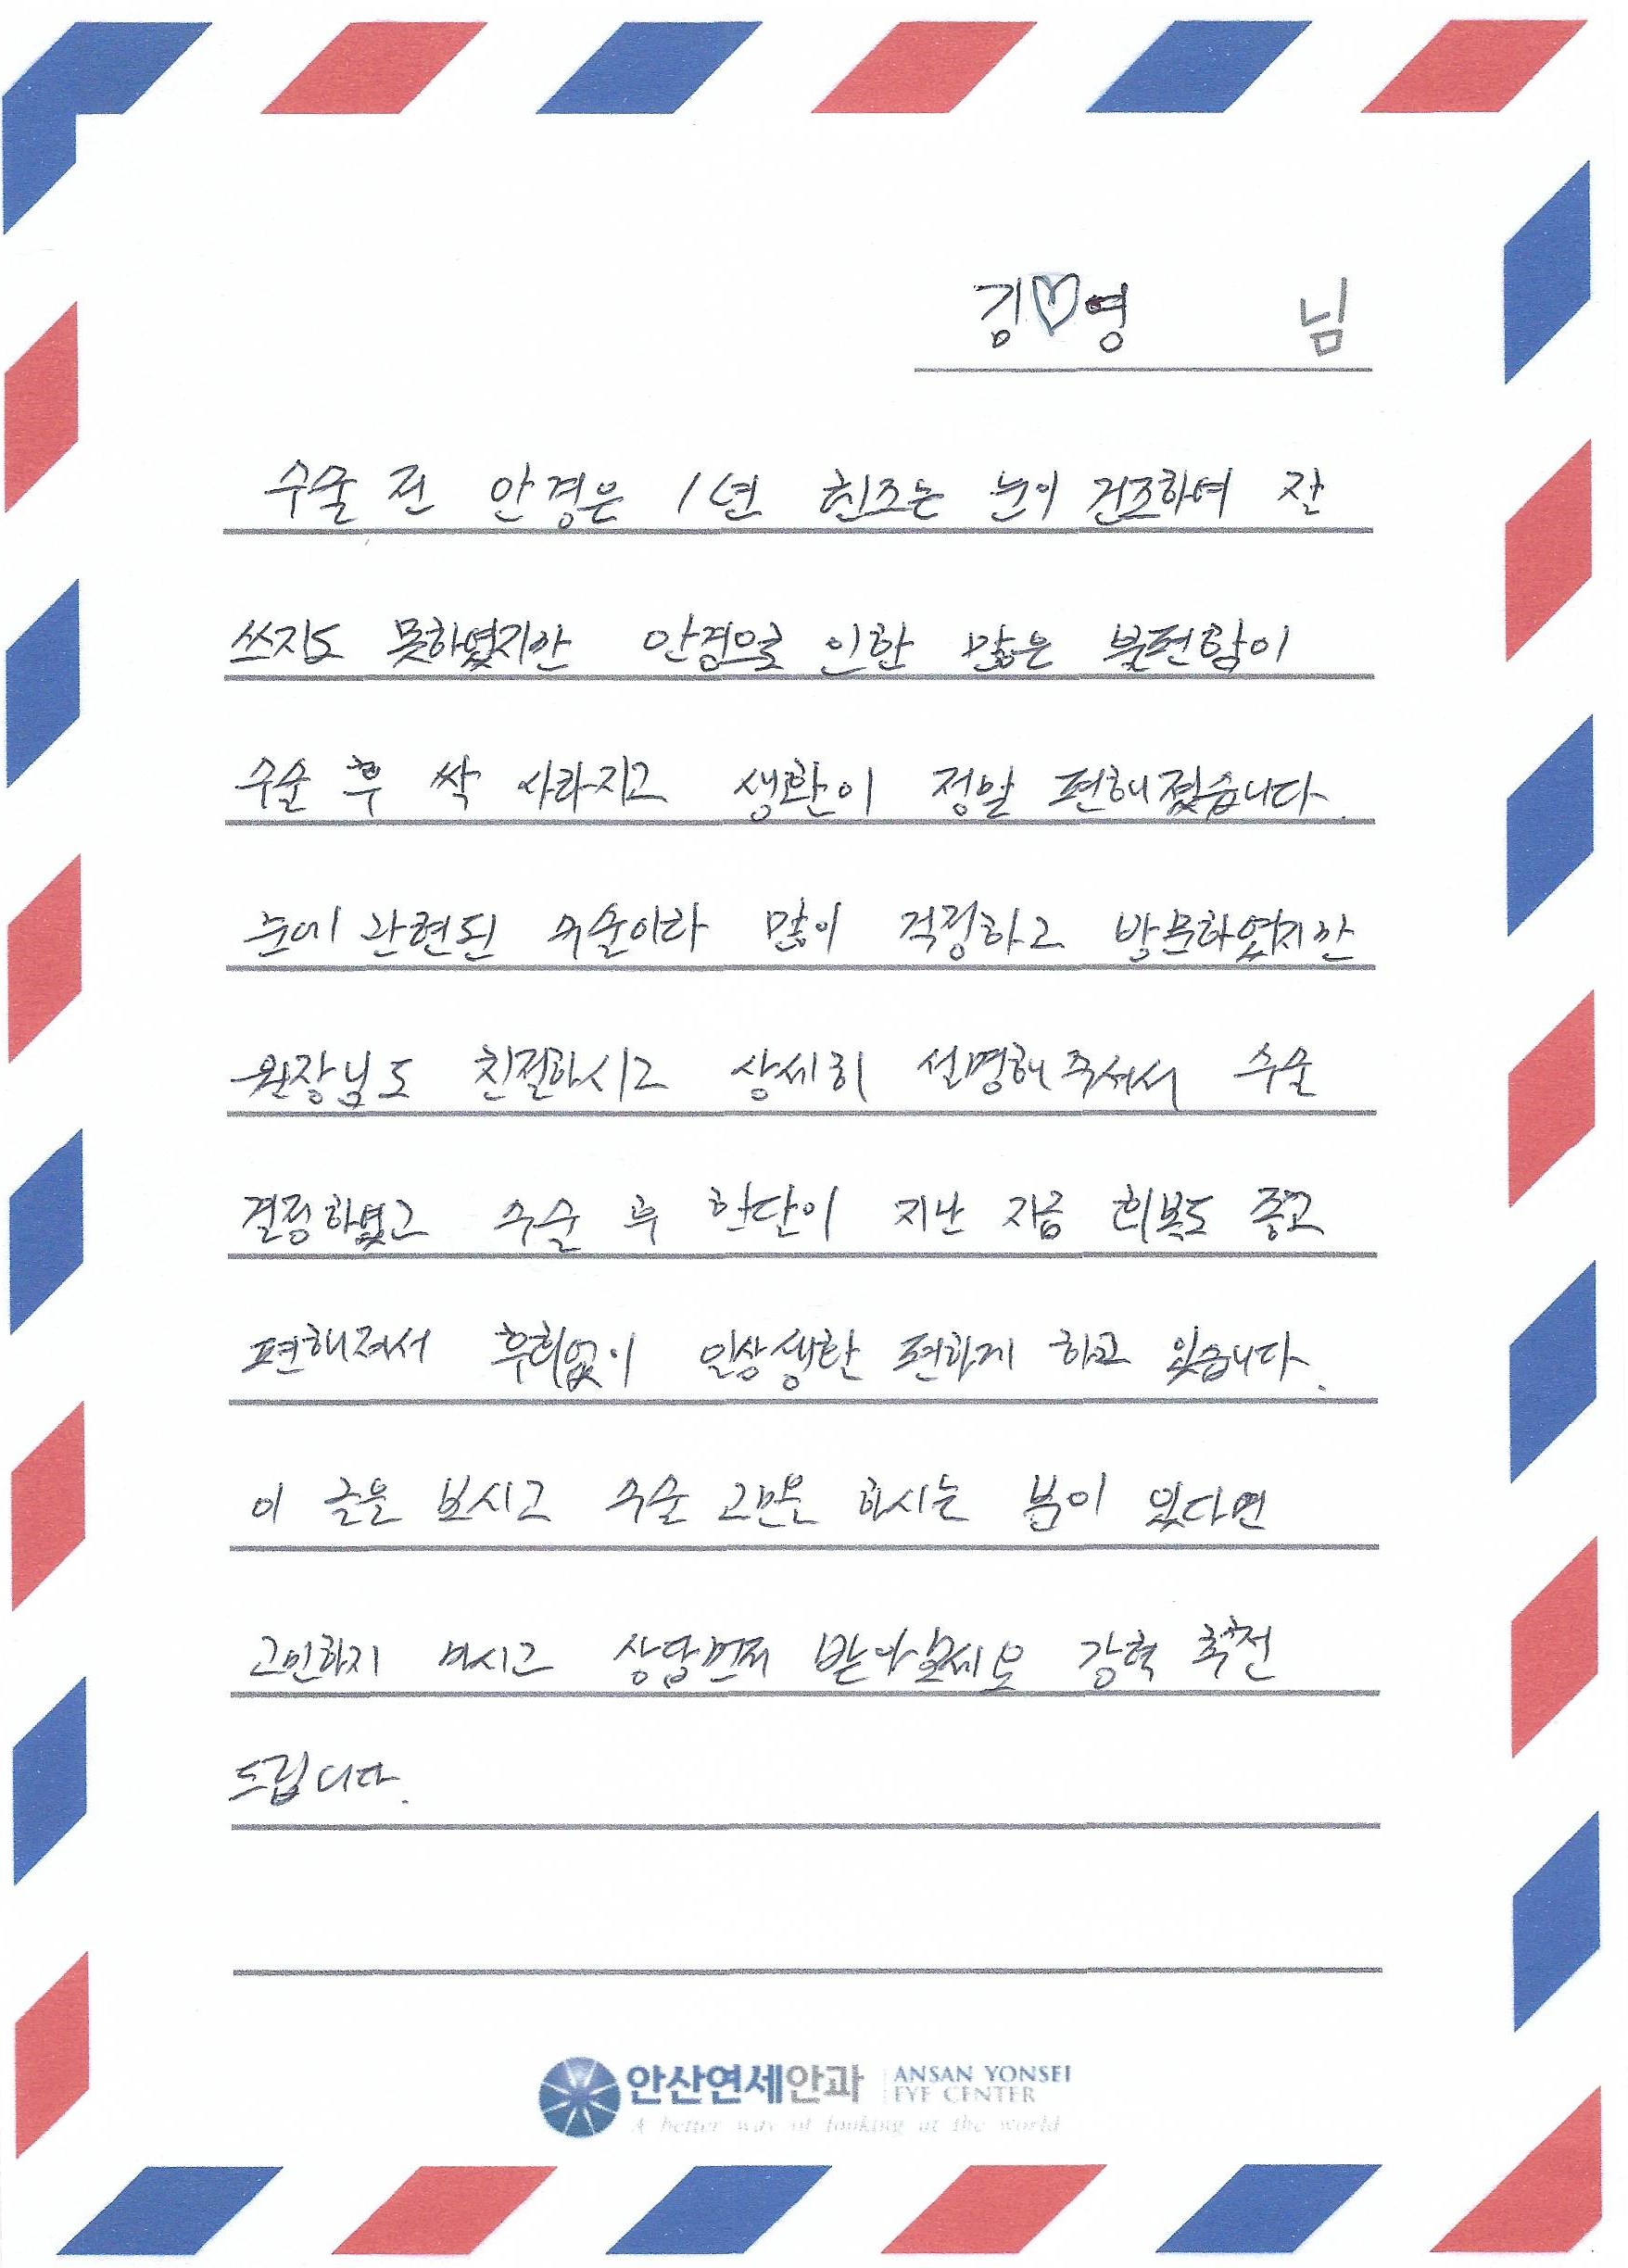 김♡영 님
수술 전 안경은 1년 렌즈는 눈이 건조하여 잘
쓰지도 못하였지만 안경으로 인한 많은 불편함이
수술 후 싹 사라지고 생활이 정말 편해졌습니다.
눈에 관련된 수술이라 많이 걱정하고 방문하였지만
원장님도 친절하시고 상세히 설명해주셔서 수술
결정하였고 수술 후 한달이 지난 지금 회복도 좋고
편해져서 후회없이 일상생활 편하게 하고 있습니다.
이 글을 보시고 수술 고민은 하시는 분이 있다면
고민하지 마시고 상담먼저 받아보세요 강력 추천
드립니다.
안산연세안과 ANSAN YONSEI
EYE CENTER
A better way of looking at the world